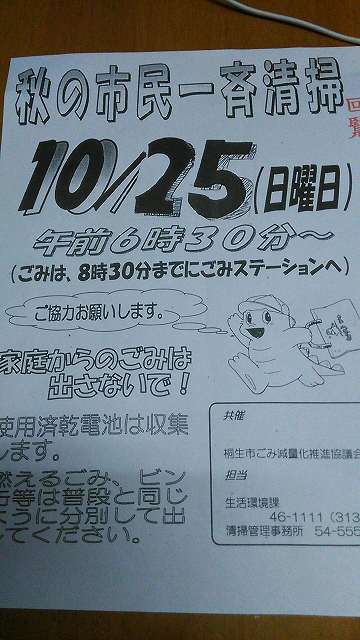 秋の市民一斉清掃
回覧
10/25(日曜日)
午前6時30分～
(ごみは、8時30分までにごみステーションへ)
ご協力お願いします。
家庭からのごみは
出さないで!
使用済乾電池は収集
します。
燃えるごみ、ビン
等は普段と同じ
ように分別して出
してください。
共催
桐生市ごみ減量化推進協議会
担当
生活環境課
46-1111 (313
清掃管理事務所 54-555